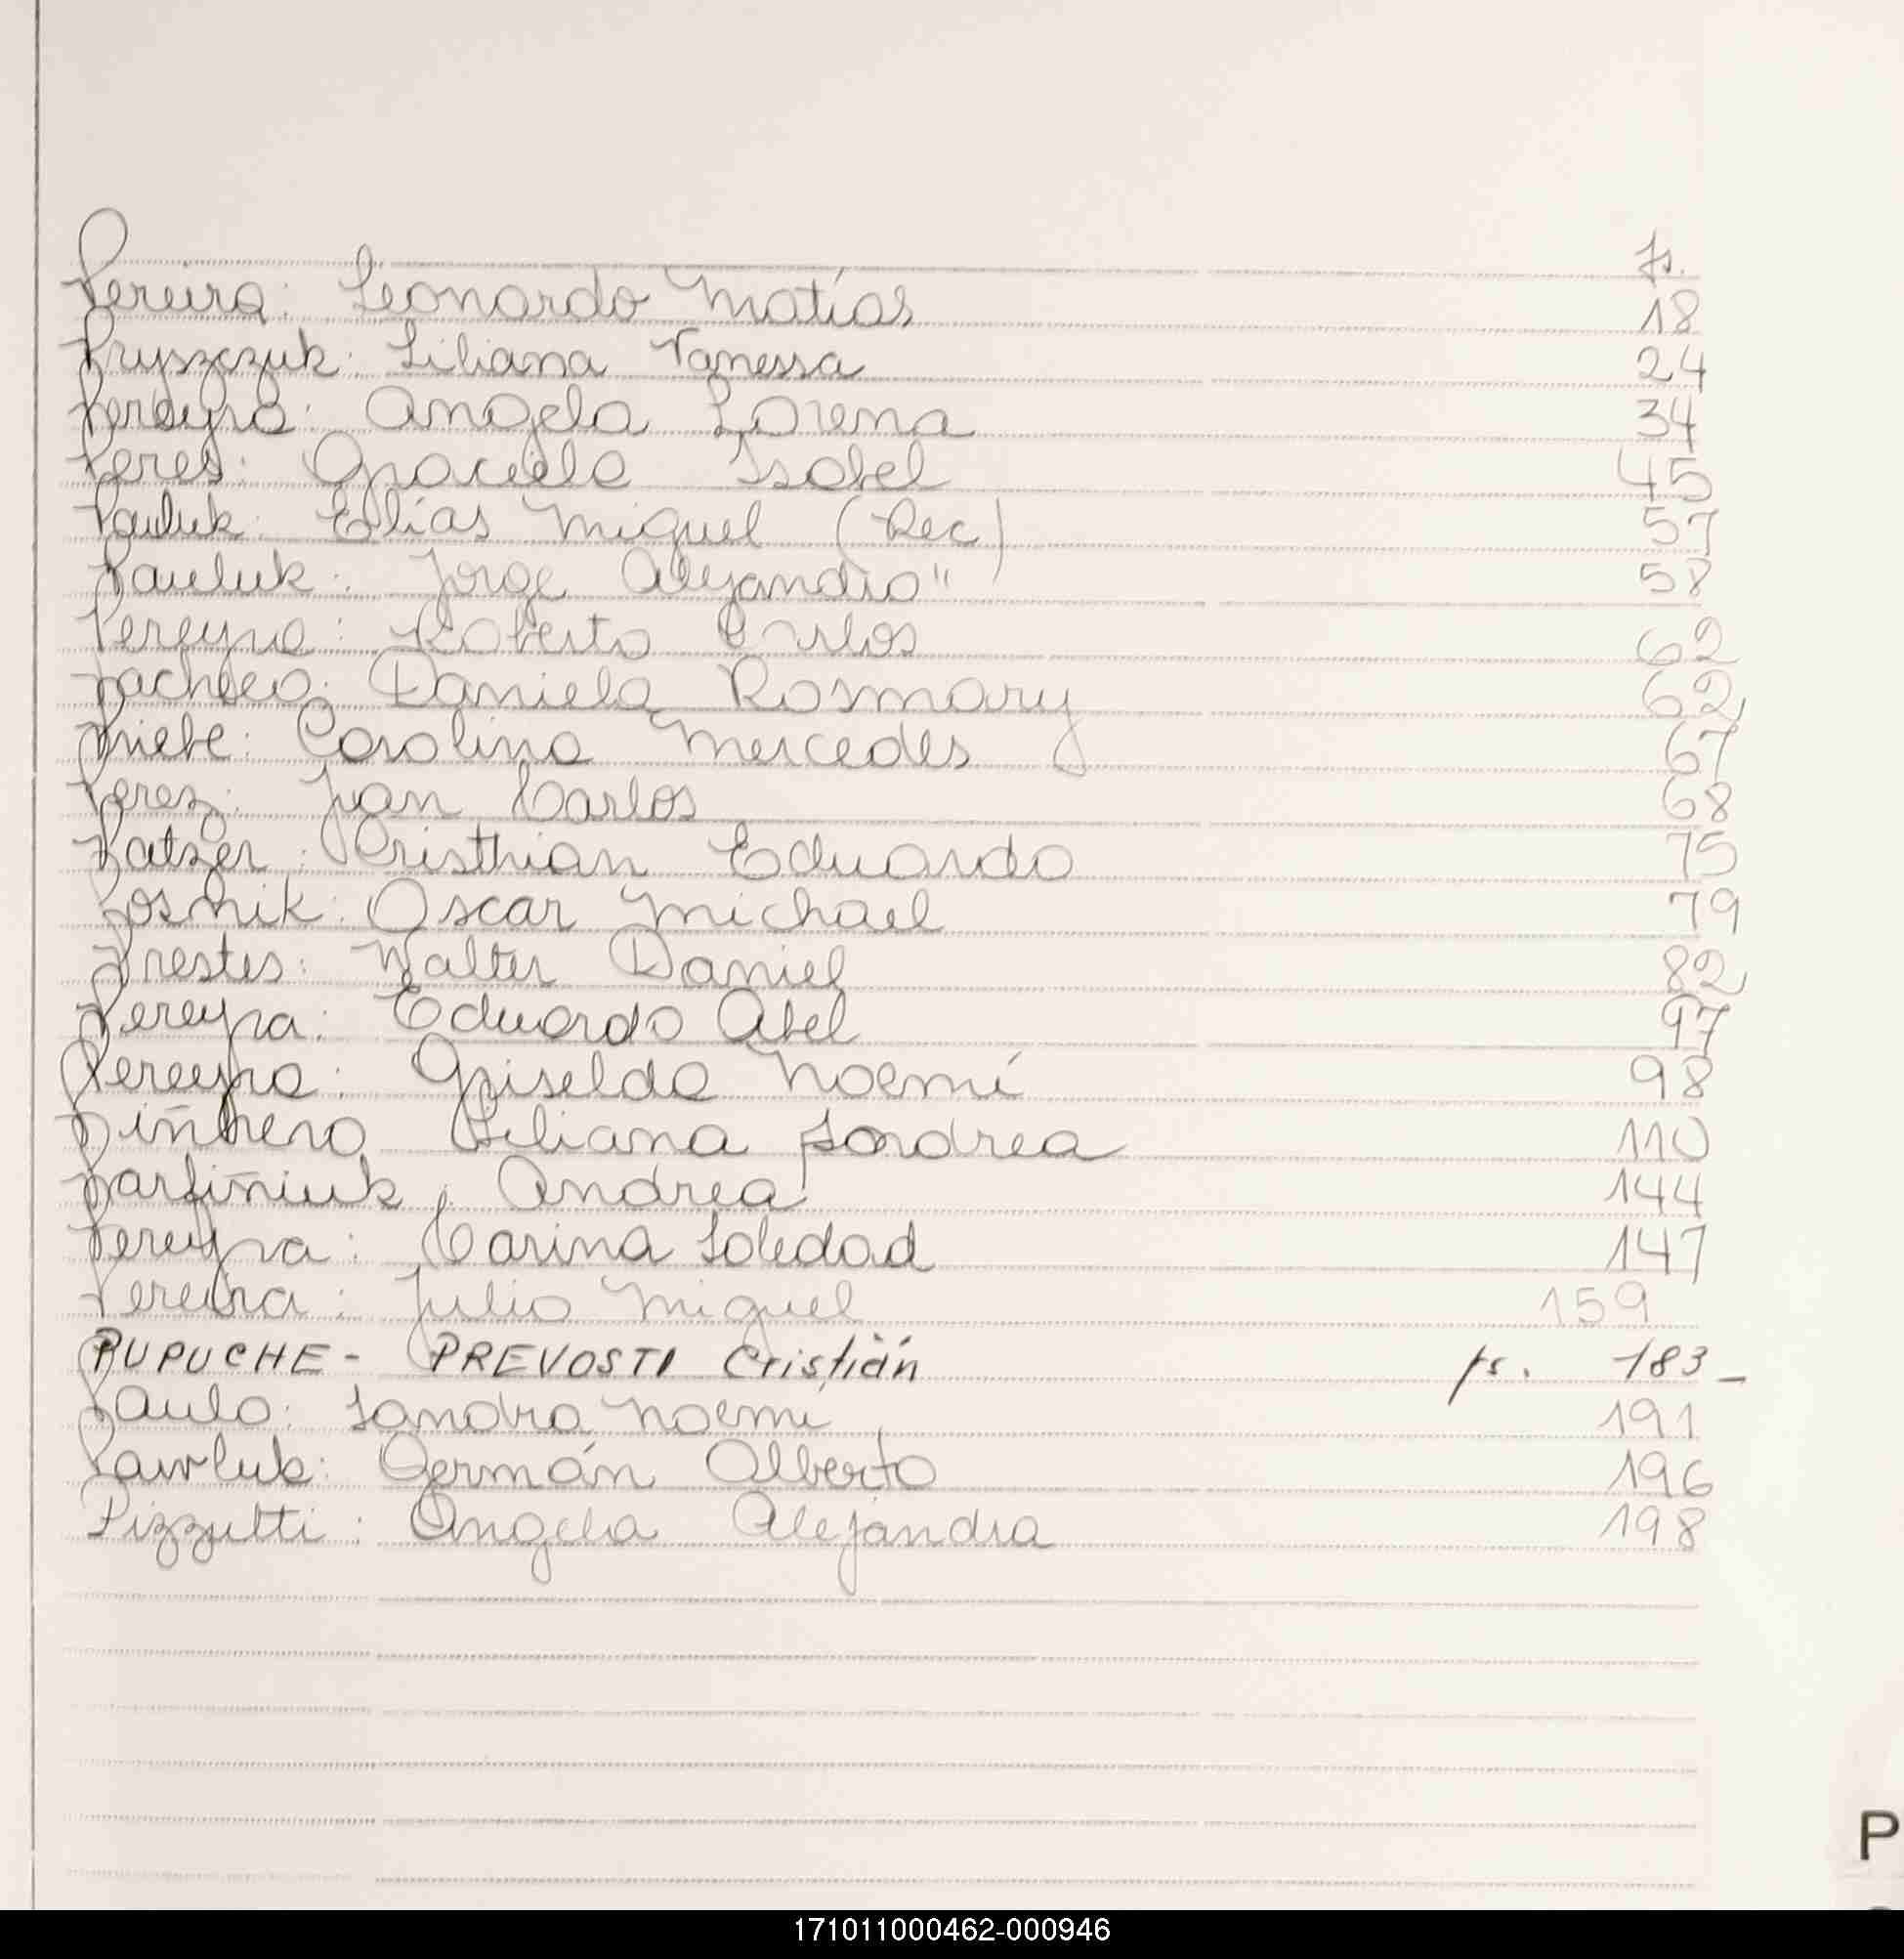 fs.
Pereira: Leonardo Matías 18
Pryszczuk: Liliana Vanessa 24
Pereyra: Angela Lorena 34
Peres: Graciela Isabel 45
Pauluk: Elías Miguel (Rec) 57
Pauluk: Jorge Alejandro " 58
Pereyra: Roberto Carlos 62
Pacheco: Daniela Rosmary 62
Priebe: Carolina Mercedes 67
Perez: Juan Carlos 68
Patzer: Cristhian Eduardo 75
Posnik: Oscar Michael 79
Prestes: Walter Daniel 82
Pereyra: Eduardo Abel 97
Pereyra: Griselda Noemí 98
Piñeiro Liliana Sandrea 110
Parfiñiuk, Andrea 144
Pereyra: Carina Soledad 147
Pereira: Julio Miguel 159
PUPUCHE - PREVOSTI Cristián fs. 183_
Paulo: Sandra Noemi 191
Pawluk: Germán Alberto 196
Pizzutti: Angela Alejandra 198
P
171011000462-000946